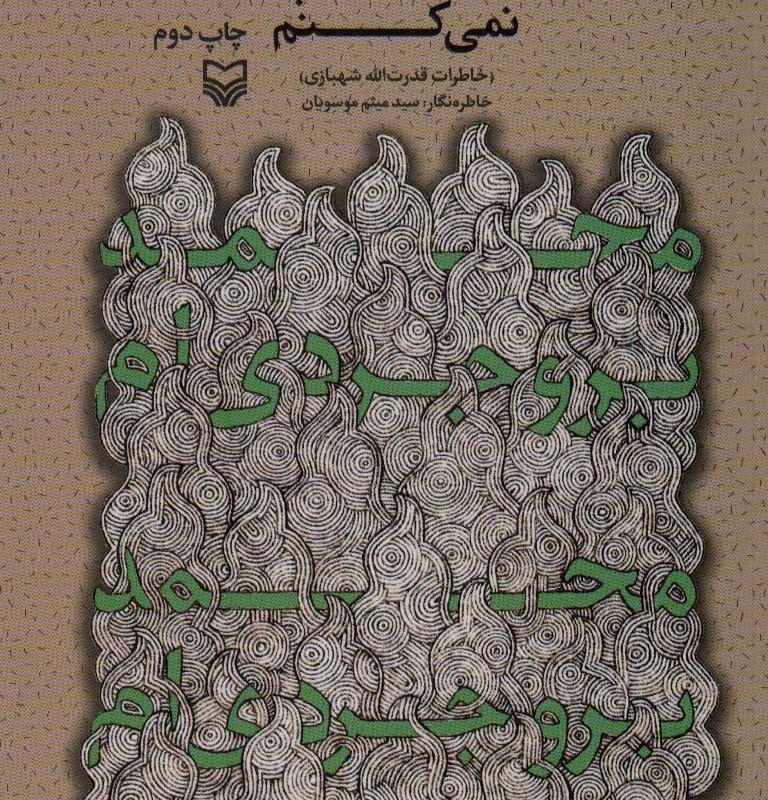 نمی‌کنم
چاپ دوم
(خاطرات قدرت‌الله شهبازی)
خاطره‌نگار: سید میثم موسویان
محمد
بروجردی ام
محمد
بروجردی ام